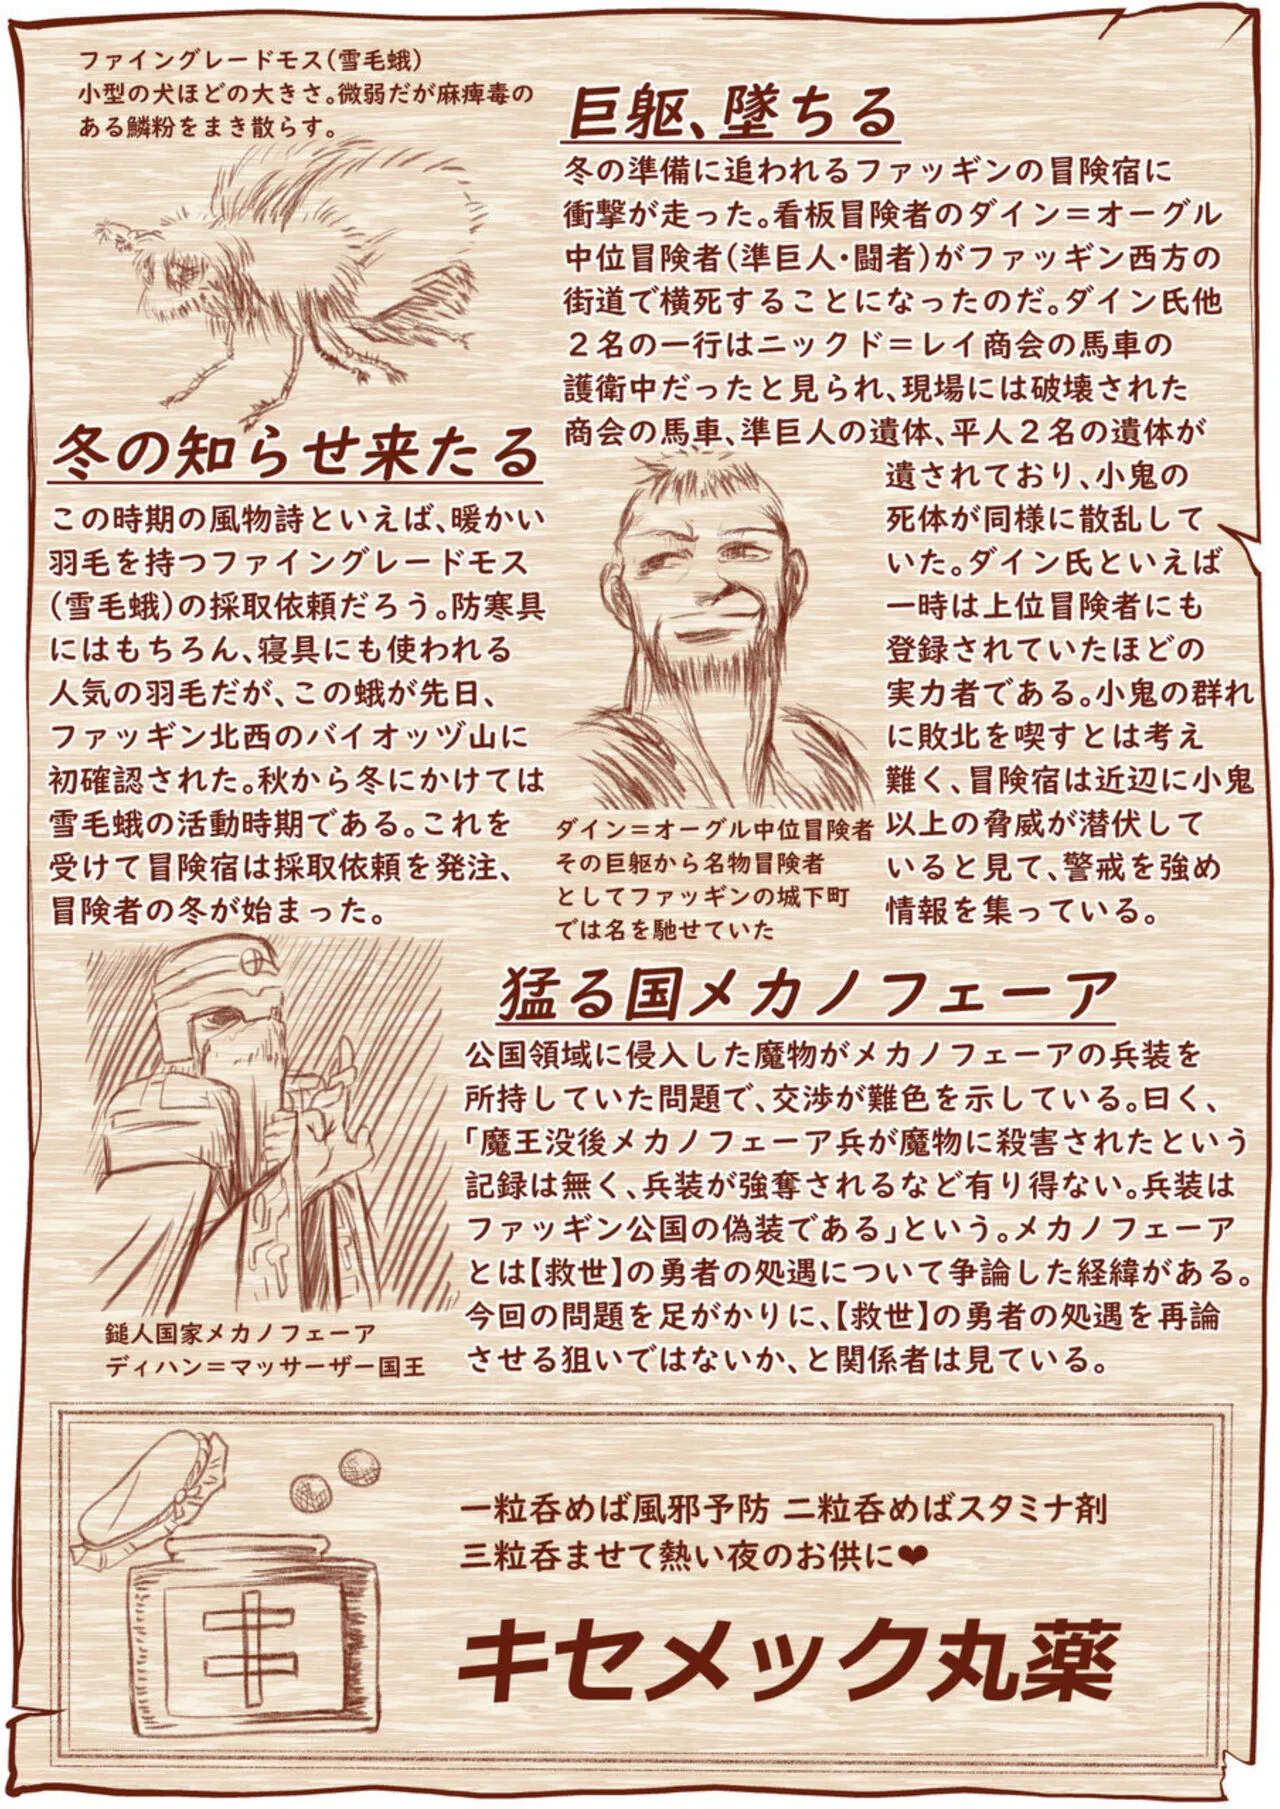 ファイングレードモス(雪毛蛾)
小型の犬ほどの大きさ。微弱だが麻痺毒の
ある鱗粉をまき散らす。
冬の知らせ来たる
この時期の風物詩といえば、暖かい
羽毛を持つファイングレードモス
(雪毛蛾)の採取依頼だろう。防寒具
にはもちろん、寝具にも使われる
人気の羽毛だが、この蛾が先日、
ファッギン北西のバイオッヅ山に
初確認された。秋から冬にかけては
雪毛蛾の活動時期である。これを
受けて冒険宿は採取依頼を発注、
冒険者の冬が始まった。
巨躯、墜ちる
冬の準備に追われるファッギンの冒険宿に
衝撃が走った。看板冒険者のダイン＝オーグル
中位冒険者(準巨人・闘者)がファッギン西方の
街道で横死することになったのだ。ダイン氏他
２名の一行はニックド＝レイ商会の馬車の
護衛中だったと見られ、現場には破壊された
商会の馬車、準巨人の遺体、平人２名の遺体が
遺されており、小鬼の
死体が同様に散乱して
いた。ダイン氏といえば
一時は上位冒険者にも
登録されていたほどの
実力者である。小鬼の群れ
に敗北を喫すとは考え
難く、冒険宿は近辺に小鬼
以上の脅威が潜伏して
いると見て、警戒を強め
情報を集っている。
ダイン＝オーグル中位冒険者
その巨躯から名物冒険者
としてファッギンの城下町
では名を馳せていた
猛る国メカノフェーア
公国領域に侵入した魔物がメカノフェーアの兵装を
所持していた問題で、交渉が難色を示している。曰く、
「魔王没後メカノフェーア兵が魔物に殺害されたという
記録は無く、兵装が強奪されるなど有り得ない。兵装は
ファッギン公国の偽装である」という。メカノフェーア
とは【救世】の勇者の処遇について争論した経緯がある。
今回の問題を足がかりに、【救世】の勇者の処遇を再論
させる狙いではないか、と関係者は見ている。
鎚人国家メカノフェーア
ディハン＝マッサーザー国王
一粒呑めば風邪予防 二粒呑めばスタミナ剤
三粒呑ませて熱い夜のお供に❤
キ
キセメック丸薬